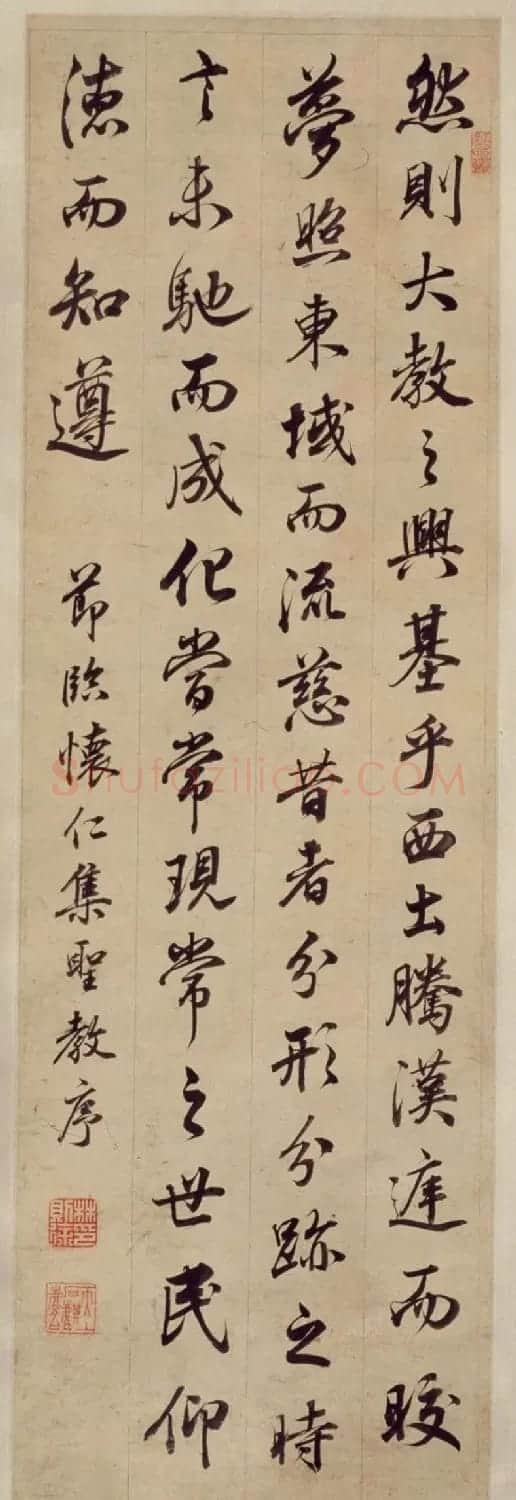 然則大教之興基乎西土騰漢庭而皎
夢照東域而流慈昔者分形分跡之時
言未馳而成化當常現常之世民仰
德而知遵
節臨懷仁集聖教序
林則徐印
Shufaziliao.COM